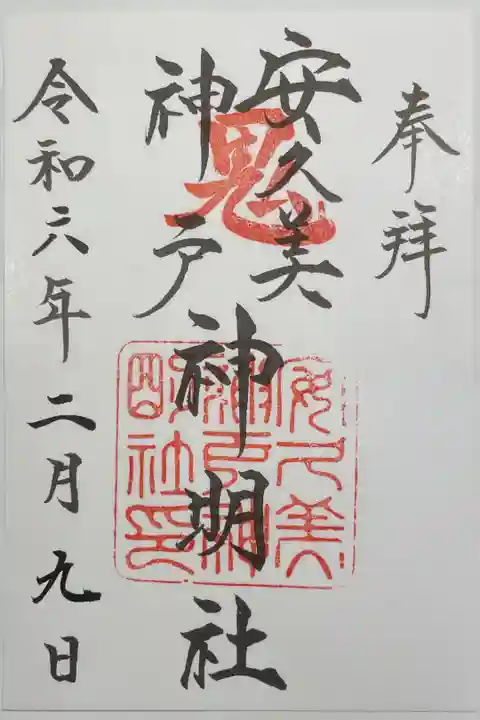 奉拝
安久美
神戸
神明社
鬼
安久美神戸神明社印
令和六年二月九日